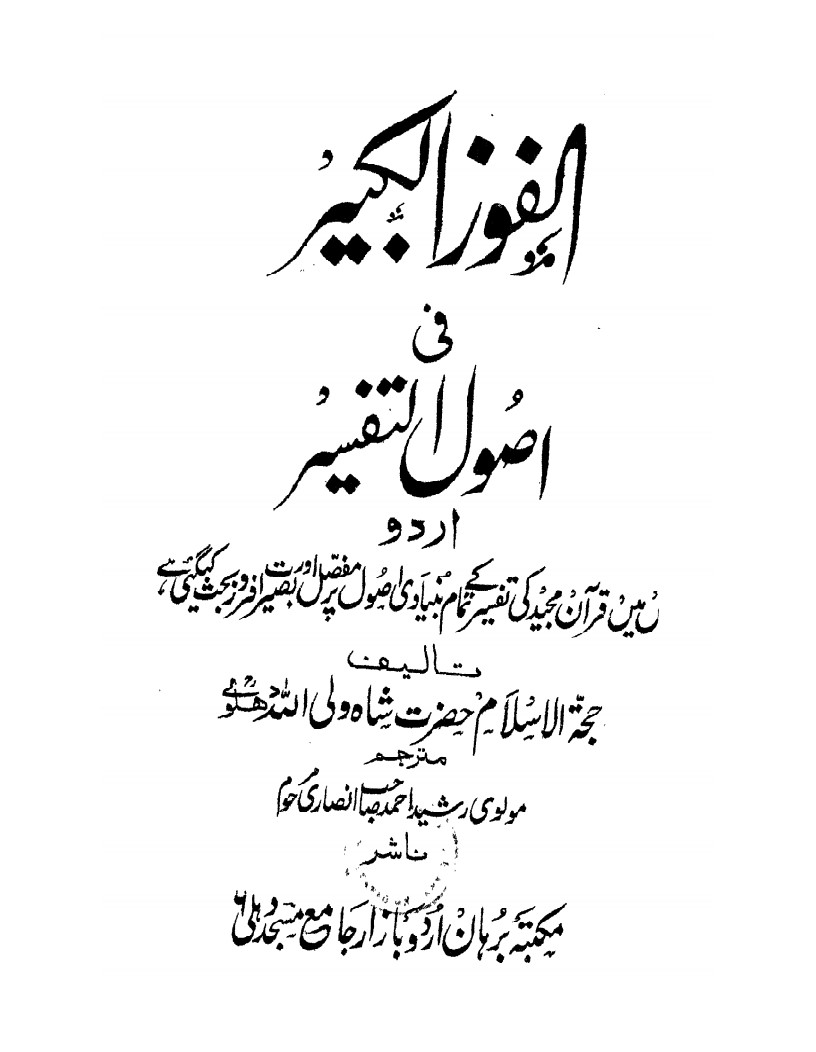 الفوز الکبیر
فی
اصول التفسیر
اردو
میں قرآن مجید کی تفسیر کے تمام بنیادی اصول پر مفصل اور بصیرت افروز بحث کی گئی ہے،
تالیف
حجۃ الاسلام حضرت شاہ ولی اللہ دھلویؒ
مترجم
مولوی رشید احمد صاحب انصاری مرحوم
ناشر
مکتبہ برہان اردو بازار جامع مسجد دہلی ۶